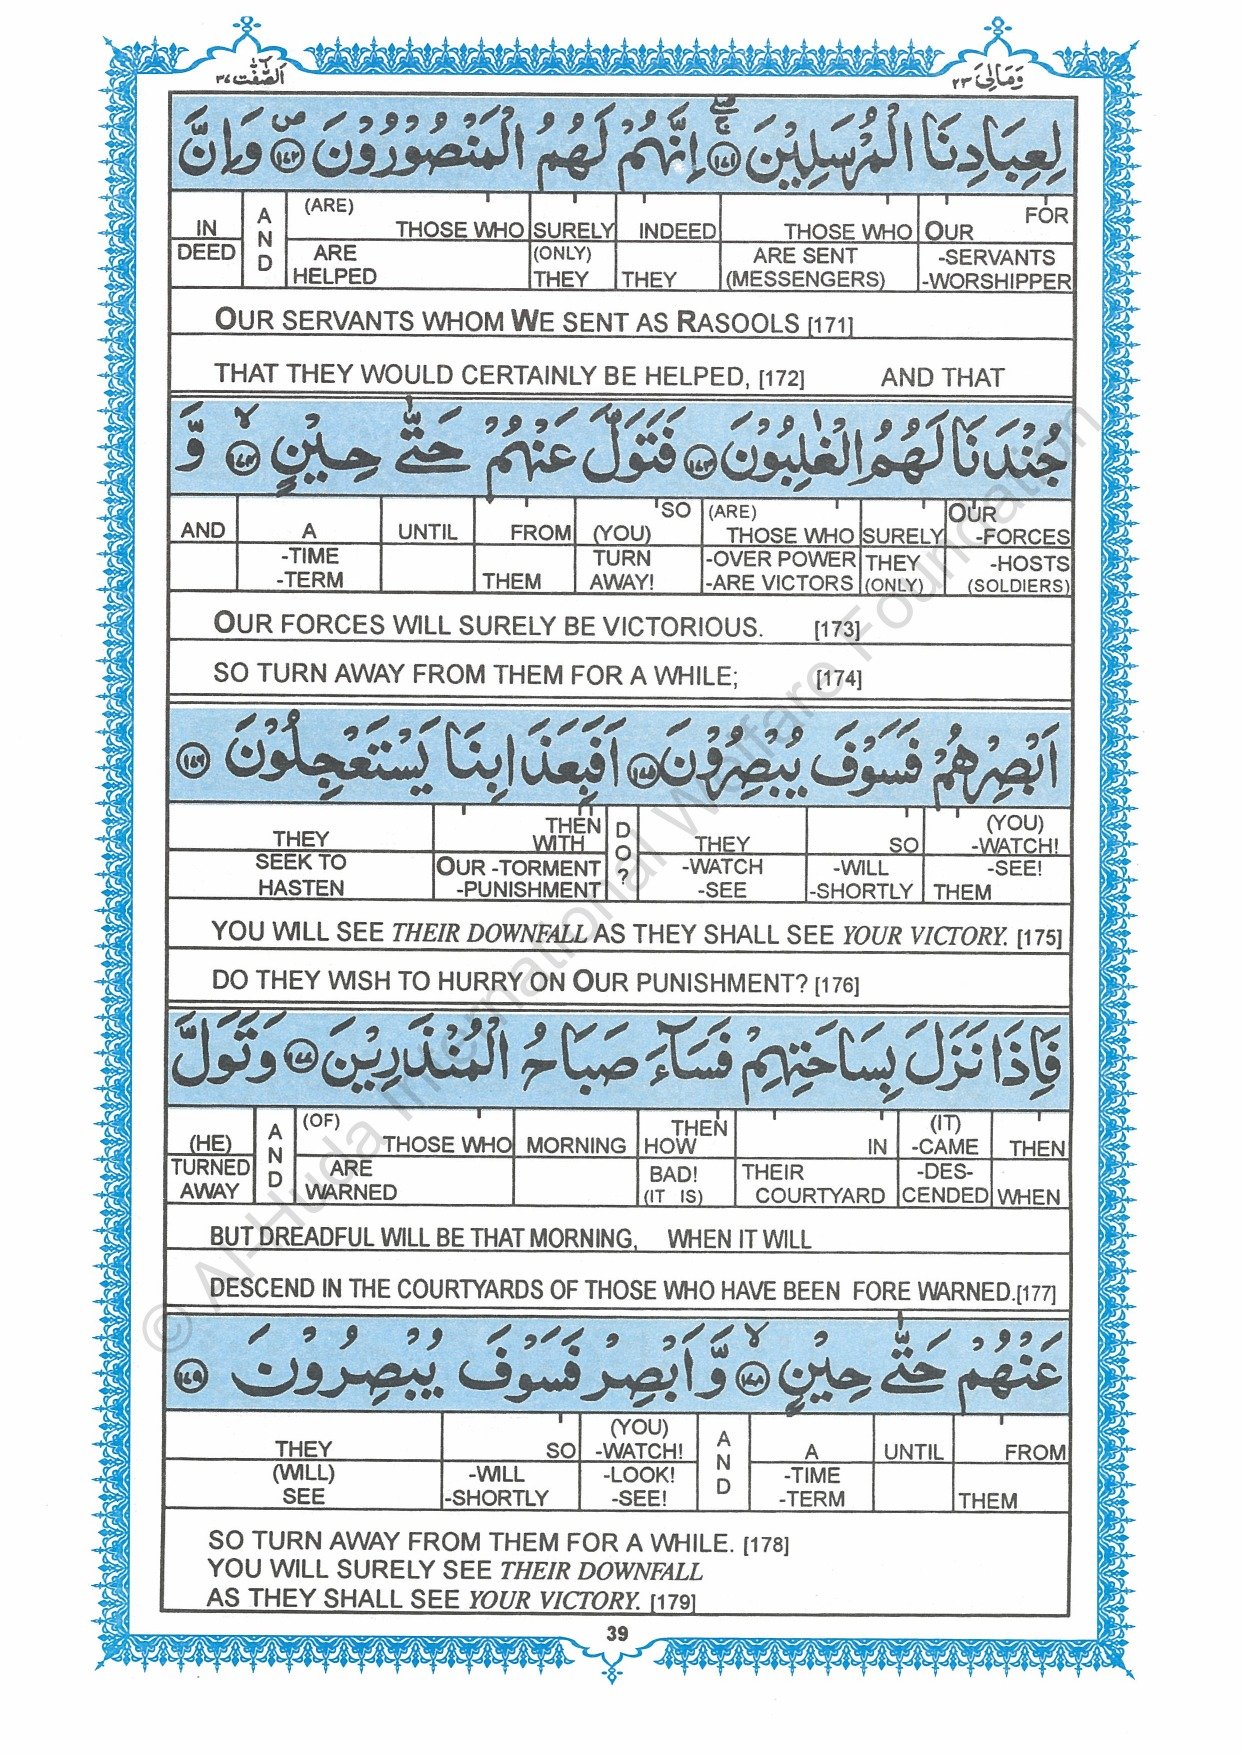 اَلصّٰٓفّٰت ٣٧
وَمَالِیَ ٢٣
لِعِبَادِنَا الْمُرْسَلِيْنَ ۚۖ ١٧١ اِنَّهُمْ لَهُمُ الْمَنْصُوْرُوْنَ ۪ ١٧٢ وَاِنَّ
FOR OUR -SERVANTS -WORSHIPPER | THOSE WHO ARE SENT (MESSENGERS) | INDEED THEY | SURELY (ONLY) THEY | (ARE) THOSE WHO ARE HELPED | AND | IN DEED
OUR SERVANTS WHOM WE SENT AS RASOOLS [171]
THAT THEY WOULD CERTAINLY BE HELPED, [172] AND THAT
جُنْدَنَا لَهُمُ الْغٰلِبُوْنَ ١٧٣ فَتَوَلَّ عَنْهُمْ حَتّٰى حِيْنٍ ۙ ١٧٤ وَّ
OUR -FORCES -HOSTS (SOLDIERS) | SURELY THEY (ONLY) | (ARE) THOSE WHO -OVER POWER -ARE VICTORS | SO (YOU) TURN AWAY! | FROM THEM | UNTIL | A -TIME -TERM | AND
OUR FORCES WILL SURELY BE VICTORIOUS. [173]
SO TURN AWAY FROM THEM FOR A WHILE; [174]
اَبْصِرْهُمْ فَسَوْفَ يُبْصِرُوْنَ ١٧٥ اَفَبِعَذَابِنَا يَسْتَعْجِلُوْنَ ١٧٦
(YOU) -WATCH! -SEE! THEM | SO -WILL -SHORTLY | THEY -WATCH -SEE | DO ? | THEN WITH OUR -TORMENT -PUNISHMENT | THEY SEEK TO HASTEN
YOU WILL SEE THEIR DOWNFALL AS THEY SHALL SEE YOUR VICTORY. [175]
DO THEY WISH TO HURRY ON OUR PUNISHMENT? [176]
فَاِذَا نَزَلَ بِسَاحَتِهِمْ فَسَآءَ صَبَاحُ الْمُنْذَرِيْنَ ١٧٧ وَتَوَلَّ
THEN WHEN | (IT) -CAME -DES- CENDED | IN THEIR COURTYARD | THEN HOW BAD! (IT IS) | MORNING | (OF) THOSE WHO ARE WARNED | AND | (HE) TURNED AWAY
BUT DREADFUL WILL BE THAT MORNING, WHEN IT WILL
DESCEND IN THE COURTYARDS OF THOSE WHO HAVE BEEN FORE WARNED.[177]
عَنْهُمْ حَتّٰى حِيْنٍ ۙ ١٧٨ وَّاَبْصِرْ فَسَوْفَ يُبْصِرُوْنَ ١٧٩
FROM THEM | UNTIL | A -TIME -TERM | AND | (YOU) -WATCH! -LOOK! -SEE! | SO -WILL -SHORTLY | THEY (WILL) SEE
SO TURN AWAY FROM THEM FOR A WHILE. [178]
YOU WILL SURELY SEE THEIR DOWNFALL
AS THEY SHALL SEE YOUR VICTORY. [179]
39
© Al-Huda International Welfare Foundation